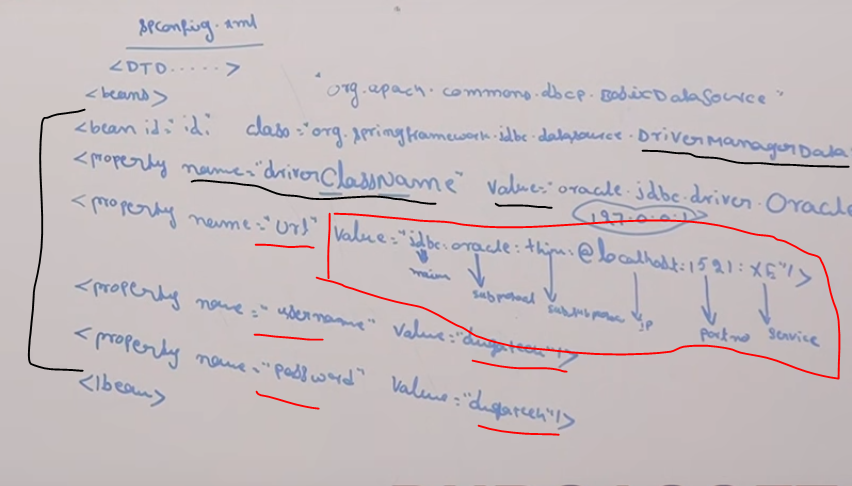 spconfig.xml
<DTD.....>
"org.apach.commons.dbcp.BasicDataSource"
<beans>
<bean id="id" class="org.springframework.jdbc.datasource.DriverManagerData
<property name="driverClassName" value="oracle.jdbc.driver.Oracle
127.0.0.1
<property name="url" value="jdbc:oracle:thin:@localhost:1521:XE"/>
main subprotocol ip port no service
<property name="username" value=
<property name="password" value=
</bean>